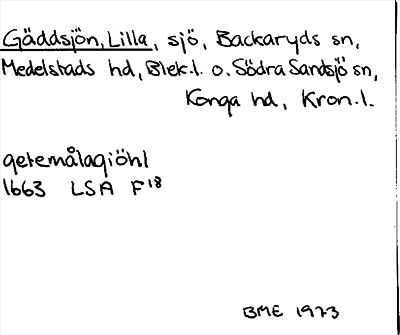 Gäddsjön, Lilla, sjö, Backaryds sn,
Medelstads hd, Blek.l. o. Södra Sandsjö sn,
Konga hd, Kron.l.
getemålagiöhl
1663 LSA F18
BME 1973